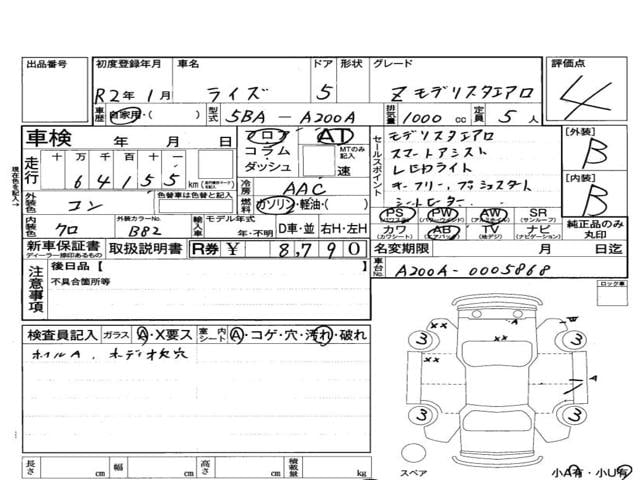 出品番号
初度登録年月 車名 ドア 形状 グレード 評価点
R2年1月 ライズ 5 Z モデリスタエアロ 4
車歴 自家用・( ) 型式 5BA-A200A 排気量 1000cc 定員 5人
車検 年 月 日
フロア AT
コラム MTのみ記入
ダッシュ 速
走行 十 万 千 百 十 一
6 4 1 5 5 km
セールスポイント
モデリスタエアロ
スマートアシスト
LEDライト
オーフリー、プッシュスタート
シートヒーター
[外装] B
[内装] B
現在色を記入→
外装色 コン 色替車は元色 色替車は替色と記入
冷房 AAC
燃料 ガソリン・軽油・( )
PS PW AW SR
(パワステ) (パワーウィンドウ) (アルミホイール) (サンルーフ)
カワ AB TV ナビ
(カワシート) (エアバッグ) (地デジ) (ナビゲーション)
純正品のみ丸印
内装色 クロ 外装カラーNo. B82 輸入車 モデル年式 年・不明 D車・並 右H・左H
新車保証書 取扱説明書 R券 ¥ 8,790
ディーラー捺印あるもの
名変期限 月 日迄
車台No. A200A-0005868
注意事項
後日品 [ ]
不具合箇所等
ロック車
検査員記入 ガラス A・X要ス 室内シート A・コゲ・穴・汚れ・破れ
ホイルA、オーディオ欠穴
××
A
3 3
××
××
A
3 3
スペア
長さ cm 幅 cm 高さ cm 積載量 kg
小A有・小U有